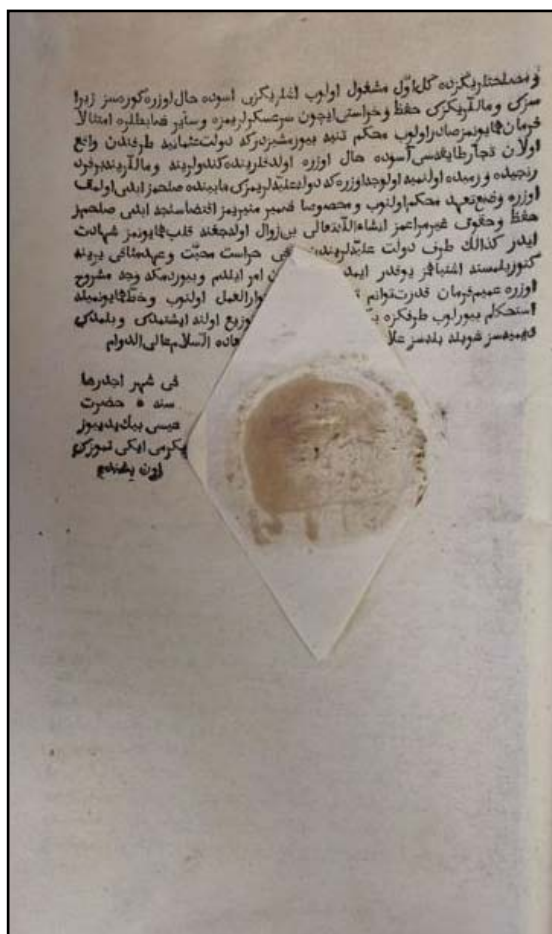 و مصلحتلریکزده کل اول مشغول اولوب اسوده حال اوزره کوره سز زیرا
سزی و مالکریکزی حفظ و حراستی ایچون سرعسکرلریمزه و سایر ضابطلره امتثالا
فرمان همایونمز صادر اولوب محکم تنبیه بیورمشیزدرکه دولت عثمانیه طرفندن واقع
اولان تجار طایفه سی آسوده حال اوزره اولدقلرینده کندولرینه و مالکرینه برفرد
رنجیده و رمیده اولنمیه اولوجه اوزره که دولت علیه لریمزی مابینده صلحمز ابدی اولمق
اوزره وضع تعهد محکم اولنوب و مخصوصا ضمیر منیریمز اقتضاسنجه ابدی صلحمز
حفظ و حقوق انشاء الله تعالی بی زوال اولدجغنه قلب همایونمز شهادت
ایدر کذالك طرف دولت علیه لریندن حراست محبت و عهد
اشتباهمز یوقدر امر ایلدم و بیوردمکه وجه مشروح
اوزره فرمان قدرت توانم العمل اولنوب و خط همایونمیله
استحکام بیورلوب طرفکزه توزیع اولنه ایشتمدك و بلمدك
دیمیه سز شویله بله سز السلام عالی الدوام
فی شهر اجدرها
سنه حضرت
عیسی بیك یدیوز
یکرمی ایکی تموزك
اون بشنده